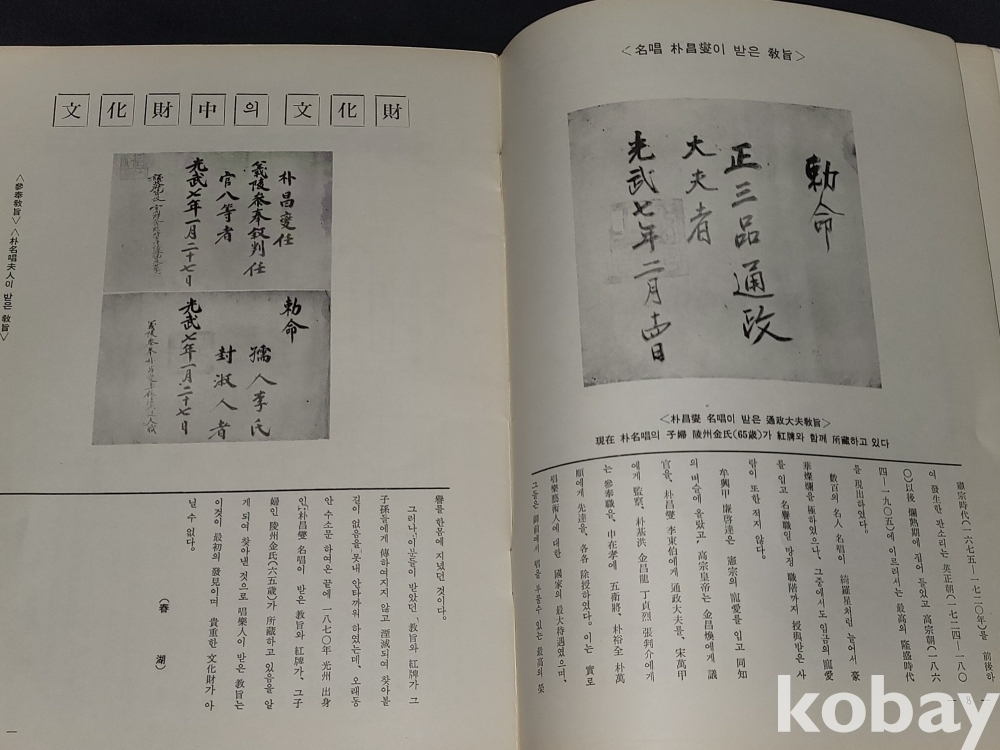 <名唱 朴昌燮이 받은 敎旨>
勅命
正三品通政
大夫者
光武七年二月
<朴昌燮 名唱이 받은 通政大夫敎旨>
現在 朴名唱의 子婦 陵州金氏(65歲)가 紅牌와 함께 所藏하고 있다
憲宗時代(一六七五—一七二〇年)를 前後하
여 發生한 판소리는 英正朝(一七二四—一八〇
〇)以後 爛熟期에 접어 들었고 高宗朝(一八六
四—一九〇五)에 이르러서는 最高의 隆盛時代
를 現出하였다。
數百의 名人 名唱이 綺羅星처럼 늘어서 豪
華燦爛을 極하였으나、그중에서도 임금의 寵愛
를 입고 名譽職일 망정 職階까지 授與받은 사
람이 또한 적지 않다。
牟興甲 廉啓達은 憲宗의 寵愛를 입고 同知
의 벼슬에 올랐고、高宗皇帝는 金昌煥에게 議
官을、朴昌燮 李東伯에게 通政大夫를、宋萬甲
에게 監察、朴基洪 金昌龍 丁貞烈 張判介에게
는 參奉職을、申在孝에 五衛將、朴裕全 朴萬
順에게 先達을、各各 除授하였다。이는 實로
唱樂藝術人에 대한 國家의 最大待遇였으며、
그들은 御前에서 唱을 부를수 있는 最高의 榮
— 8 —
文化財中의 文化財
朴昌燮任
義陵參奉敍判任
官八等者
光武七年一月二十七日
勅命
孺人李氏
封淑人者
光武七年一月二十七日
<參奉敎旨> <朴名唱夫人이 받은 敎旨>
譽를 한몸에 지녔던 것이다。
그러나、이분들이 받았던 「敎旨와 紅牌가 그
子孫들에게 傳하여지지 않고 湮滅되여 찾아볼
길이 없음을 못내 안타까워 하였는데、오래동
안 수소문 하여온 끝에 一八七〇年 光州 出身
인 朴昌燮 名唱이 받은 敎旨와 紅牌가、그 子
婦인 陵州金氏(六五歲)가 所藏하고 있음을 알
게 되여 찾아낸 것으로 唱樂人이 받은 敎旨는
이것이 最初의 發見이며 貴重한 文化財가 아
닐 수 없다。
(春 湖)
kobay